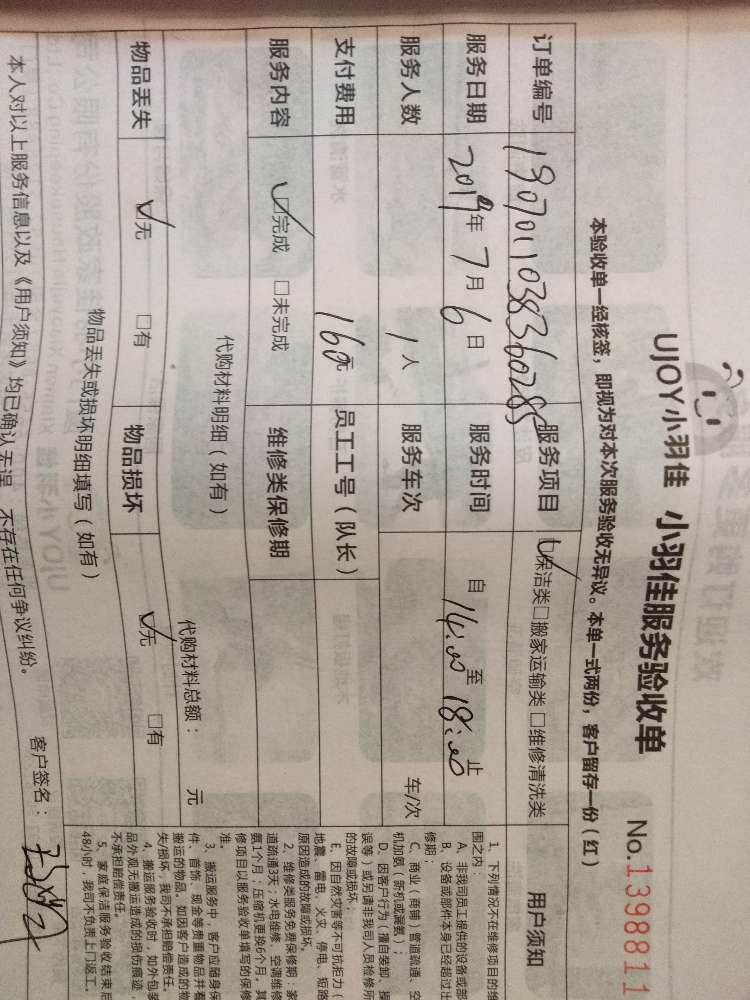 UJOY小羽佳 小羽佳服务验收单
No.1398811
本验收单一经核签，即视为对本次服务验收无异议。本单一式两份，客户留存一份（红）
订单编号 190701103836028 服务项目 保洁类□搬家运输类 □维修清洗类
服务日期 2019年 7月 6日 服务时间 自 14:00 至 18:00 止
服务人数 1人 服务车次 车/次
支付费用 160元 员工工号（队长）
服务内容 ☑完成 □未完成 维修类保修期
代购材料明细（如有）
代购材料总额： 元
物品丢失 ☑无 □有 物品损坏 ☑无 □有
物品丢失或损坏明细填写（如有）
本人对以上服务信息以及《用户须知》均已确认无误，不存在任何争议纠纷。
客户签名：
用户须知
1、下列情况不在维修项目的维
围之内：
A、非我司员工提供的设备或部
B、设备或部件本身已经超过出
修期；
C、商业（商铺）管道疏通、空
机加氨（新机或漏氨）；
D、因客户行为（擅自装卸、操
误等）或另请非我司人员检修所
的故障或损坏；
E、因自然灾害等不可抗拒力（
地震、雷电、火灾、停电、短路
原因造成的故障或损坏。
2、维修类服务免费保修期：家
道疏通3天；水电维修、空调维修
氨1个月；压缩机更换6个月，其
修项目以服务验收单填写的保修
准。
3、搬运服务中，客户应随身保
件、首饰、现金等贵重物品并看
搬运的物品。如因客户造成的物
失/损坏，我司不承担赔偿责任。
4、搬运服务验收时，如外包装
品外观无搬运造成的损伤痕迹，
不承担赔偿责任。
5、家庭保洁服务验收结束后
48小时，我司不负责上门返工。